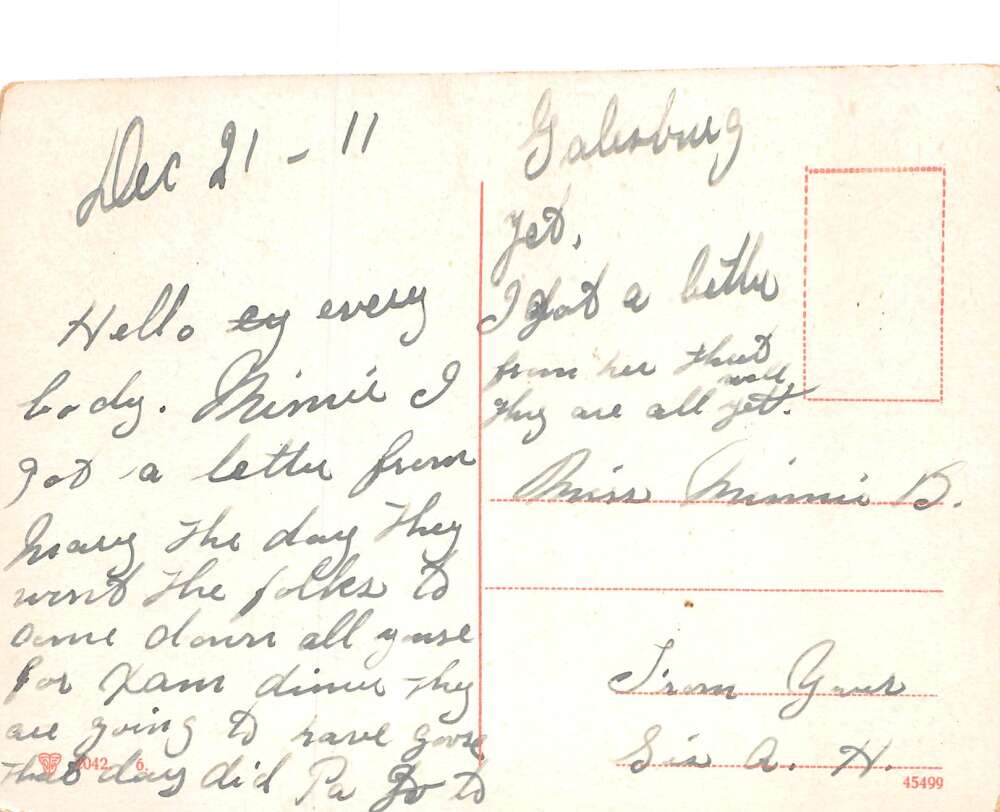 Dec 21 - 11
Hello ey every
body. Minnie I
got a letter from
Mary the day they
want the folks to
come down all youse
for Xam dinner they
are going to have goose
that day did Pa go to
Galesburg
yet.
I got a letter
from her that
they are all well
yet.
Miss Minnie B.
From Your
Sis A. H.
2042. 6.
45499